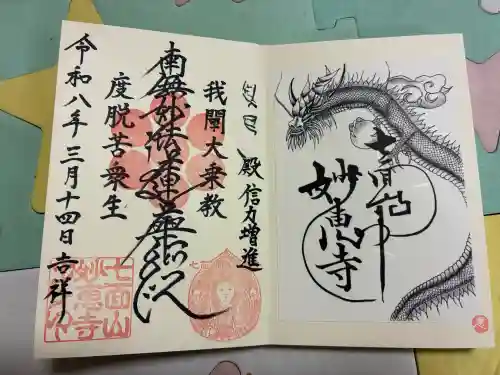 殿 信力増進
我聞大乗教
南無妙法蓮華経
度脱苦衆生
令和八年 三月十四日 吉祥
七面山
妙恵寺